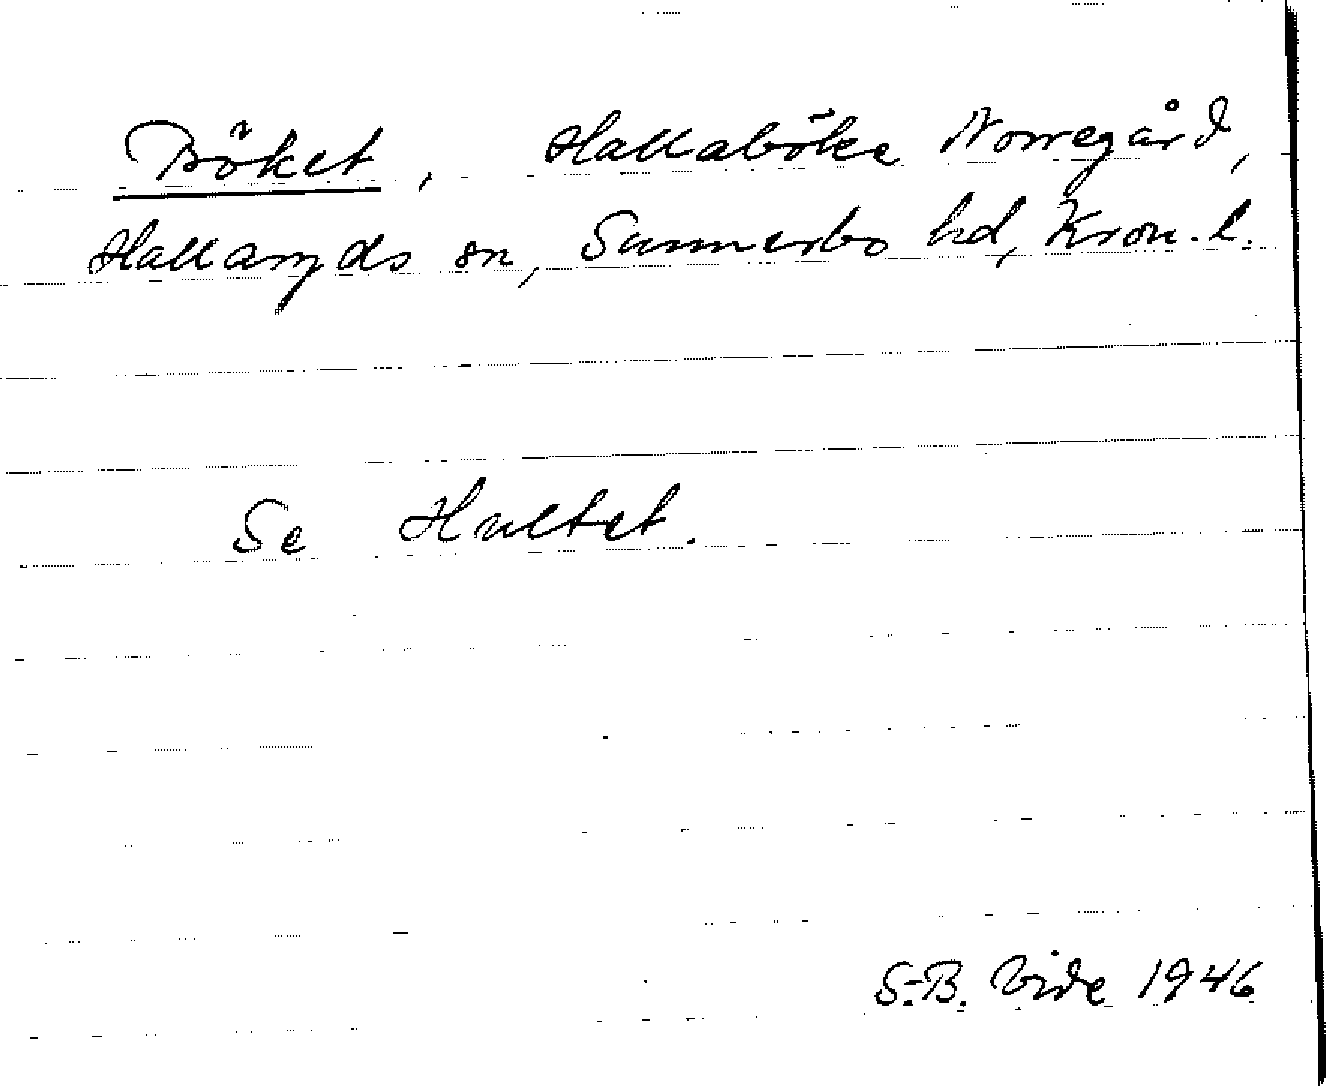 Böket, Hallaböke Norregård,
Hallaryds sn, Sunnerbo hd, Kron. l.
Se Hultet.
S.-B. Vide 1946